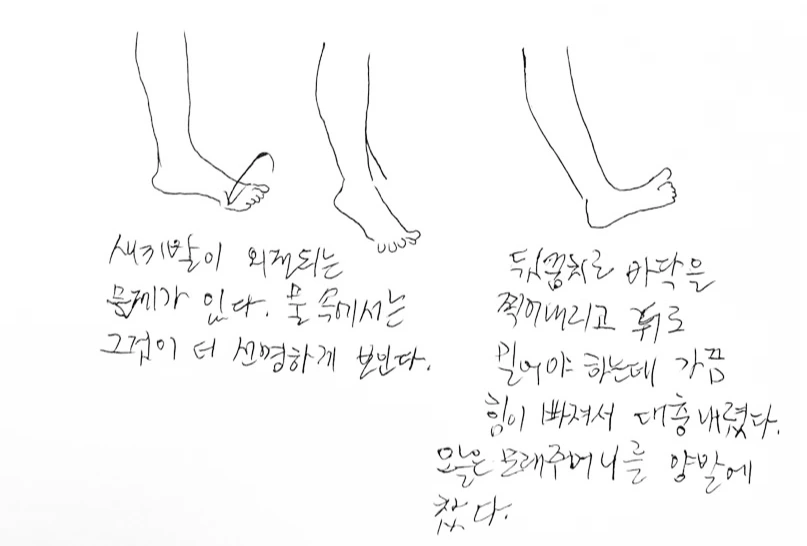 새끼발이 외전되는
문제가 있다. 물 속에서는
그것이 더 선명하게 보인다.
뒤꿈치로 바닥을
찍어내리고 뒤로
밀어야 하는데 가끔
힘이 빠져서 대충 내렸다.
오늘은 모래주머니를 양발에
찼다.